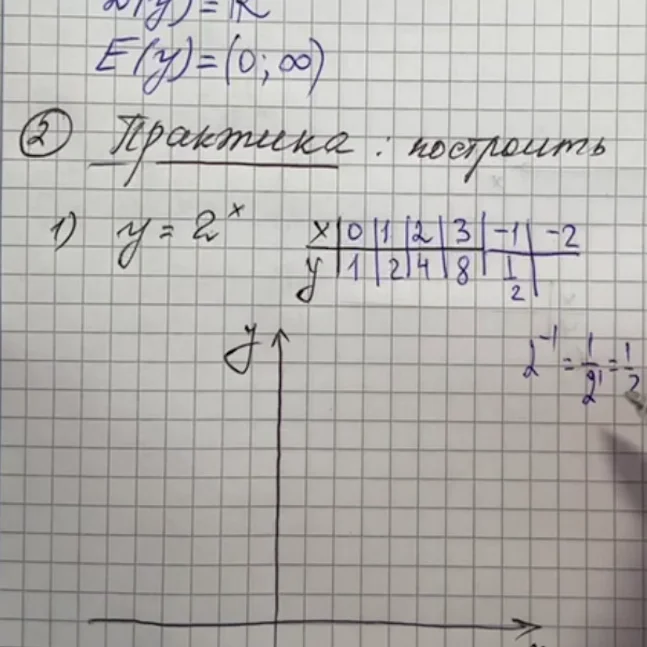 D(y)=R
E(y)=(0;∞)
② Практика: построить
1) y=2ˣ
x 0 1 2 3 -1 -2
y 1 2 4 8 1/2
y
2⁻¹=1/2¹=1/2